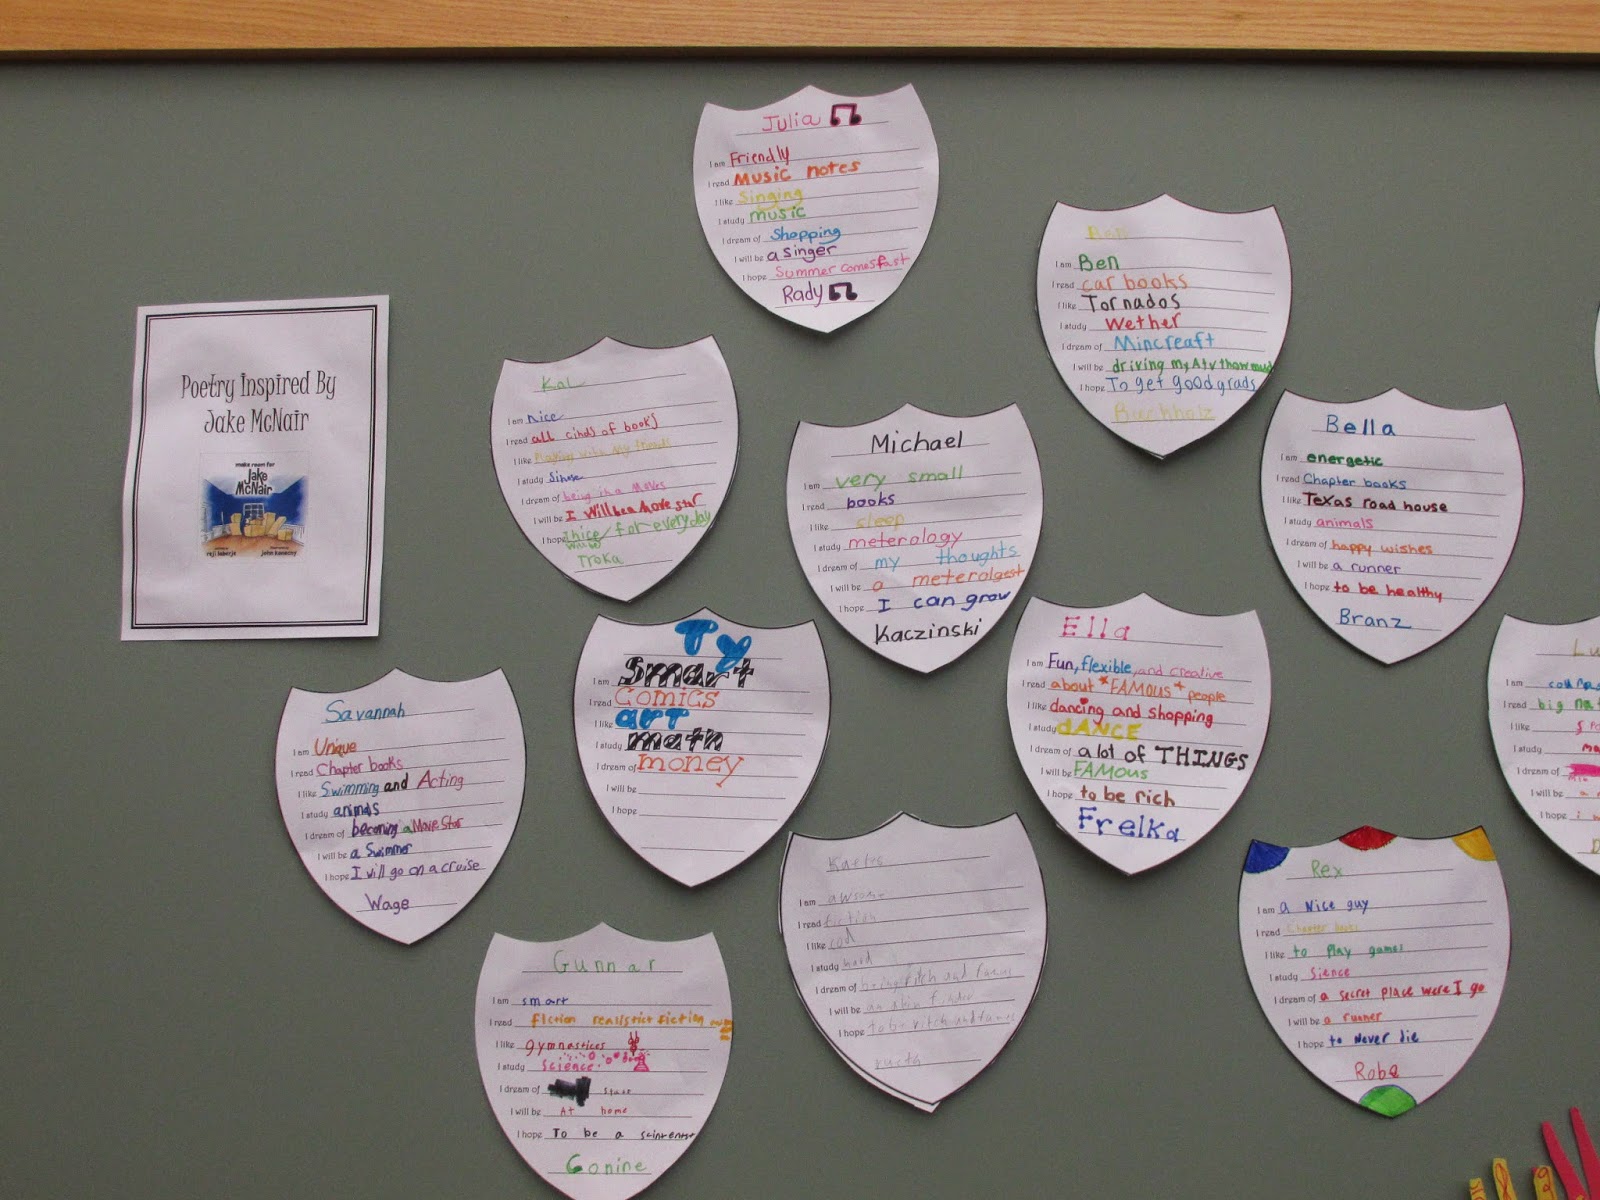 Poetry Inspired By
Jake McNair
make room for
Jake
McNair
Julia
I am Friendly
I read Music notes
I like Singing
I study music
I dream of Shopping
I will be a singer
I hope Summer comes fast
Rady
I am Ben
I read car books
I like Tornados
I study Wether
I dream of Mincreaft
I will be driving my Atv
I hope To get good grads
Buchholz
Kal
I am nice
I read all cinds of books
I like
I study
I dream of being in a Moves
I will be I will be a Move star
I hope for every day
Troka
Michael
I am very small
I read books
I like sleep
I study meterology
I dream of my thoughts
I will be a meteralgest
I hope I can grow
Kaczinski
Bella
I am energetic
I read Chapter books
I like Texas road house
I study animals
I dream of happy wishes
I will be a runner
I hope to be healthy
Branz
Ty
I am Smart
I read Comics
I like art
I study math
I dream of money
I will be
I hope
Ella
I am Fun, flexible, and creative
I read about *FAMOUS* people
I like dancing and shopping
I study dANCE
I dream of a lot of THINGS
I will be FAMous
I hope to be rich
Frelka
Savannah
I am Unique
I read Chapter books
I like Swimming and Acting
I study animals
I dream of becoming a Movie Star
I will be a Swimmer
I hope I will go on a cruise
Wage
I am
I read big
I like
I study
I dream of
I will be
I hope
Gunnar
I am smart
I read fiction realistict fiction
I like gymnastices
I study Science
I dream of
I will be At home
I hope To be a scintentst
Gonine
I am awsome
I read fiction
I like cod
I study hard
I dream of being ritch and
I will be
I hope to be ritch and
Rex
I am a Nice guy
I read Chapter books
I like to Play games
I study Sience
I dream of a secret place were I go
I will be a runner
I hope to Never die
Robe